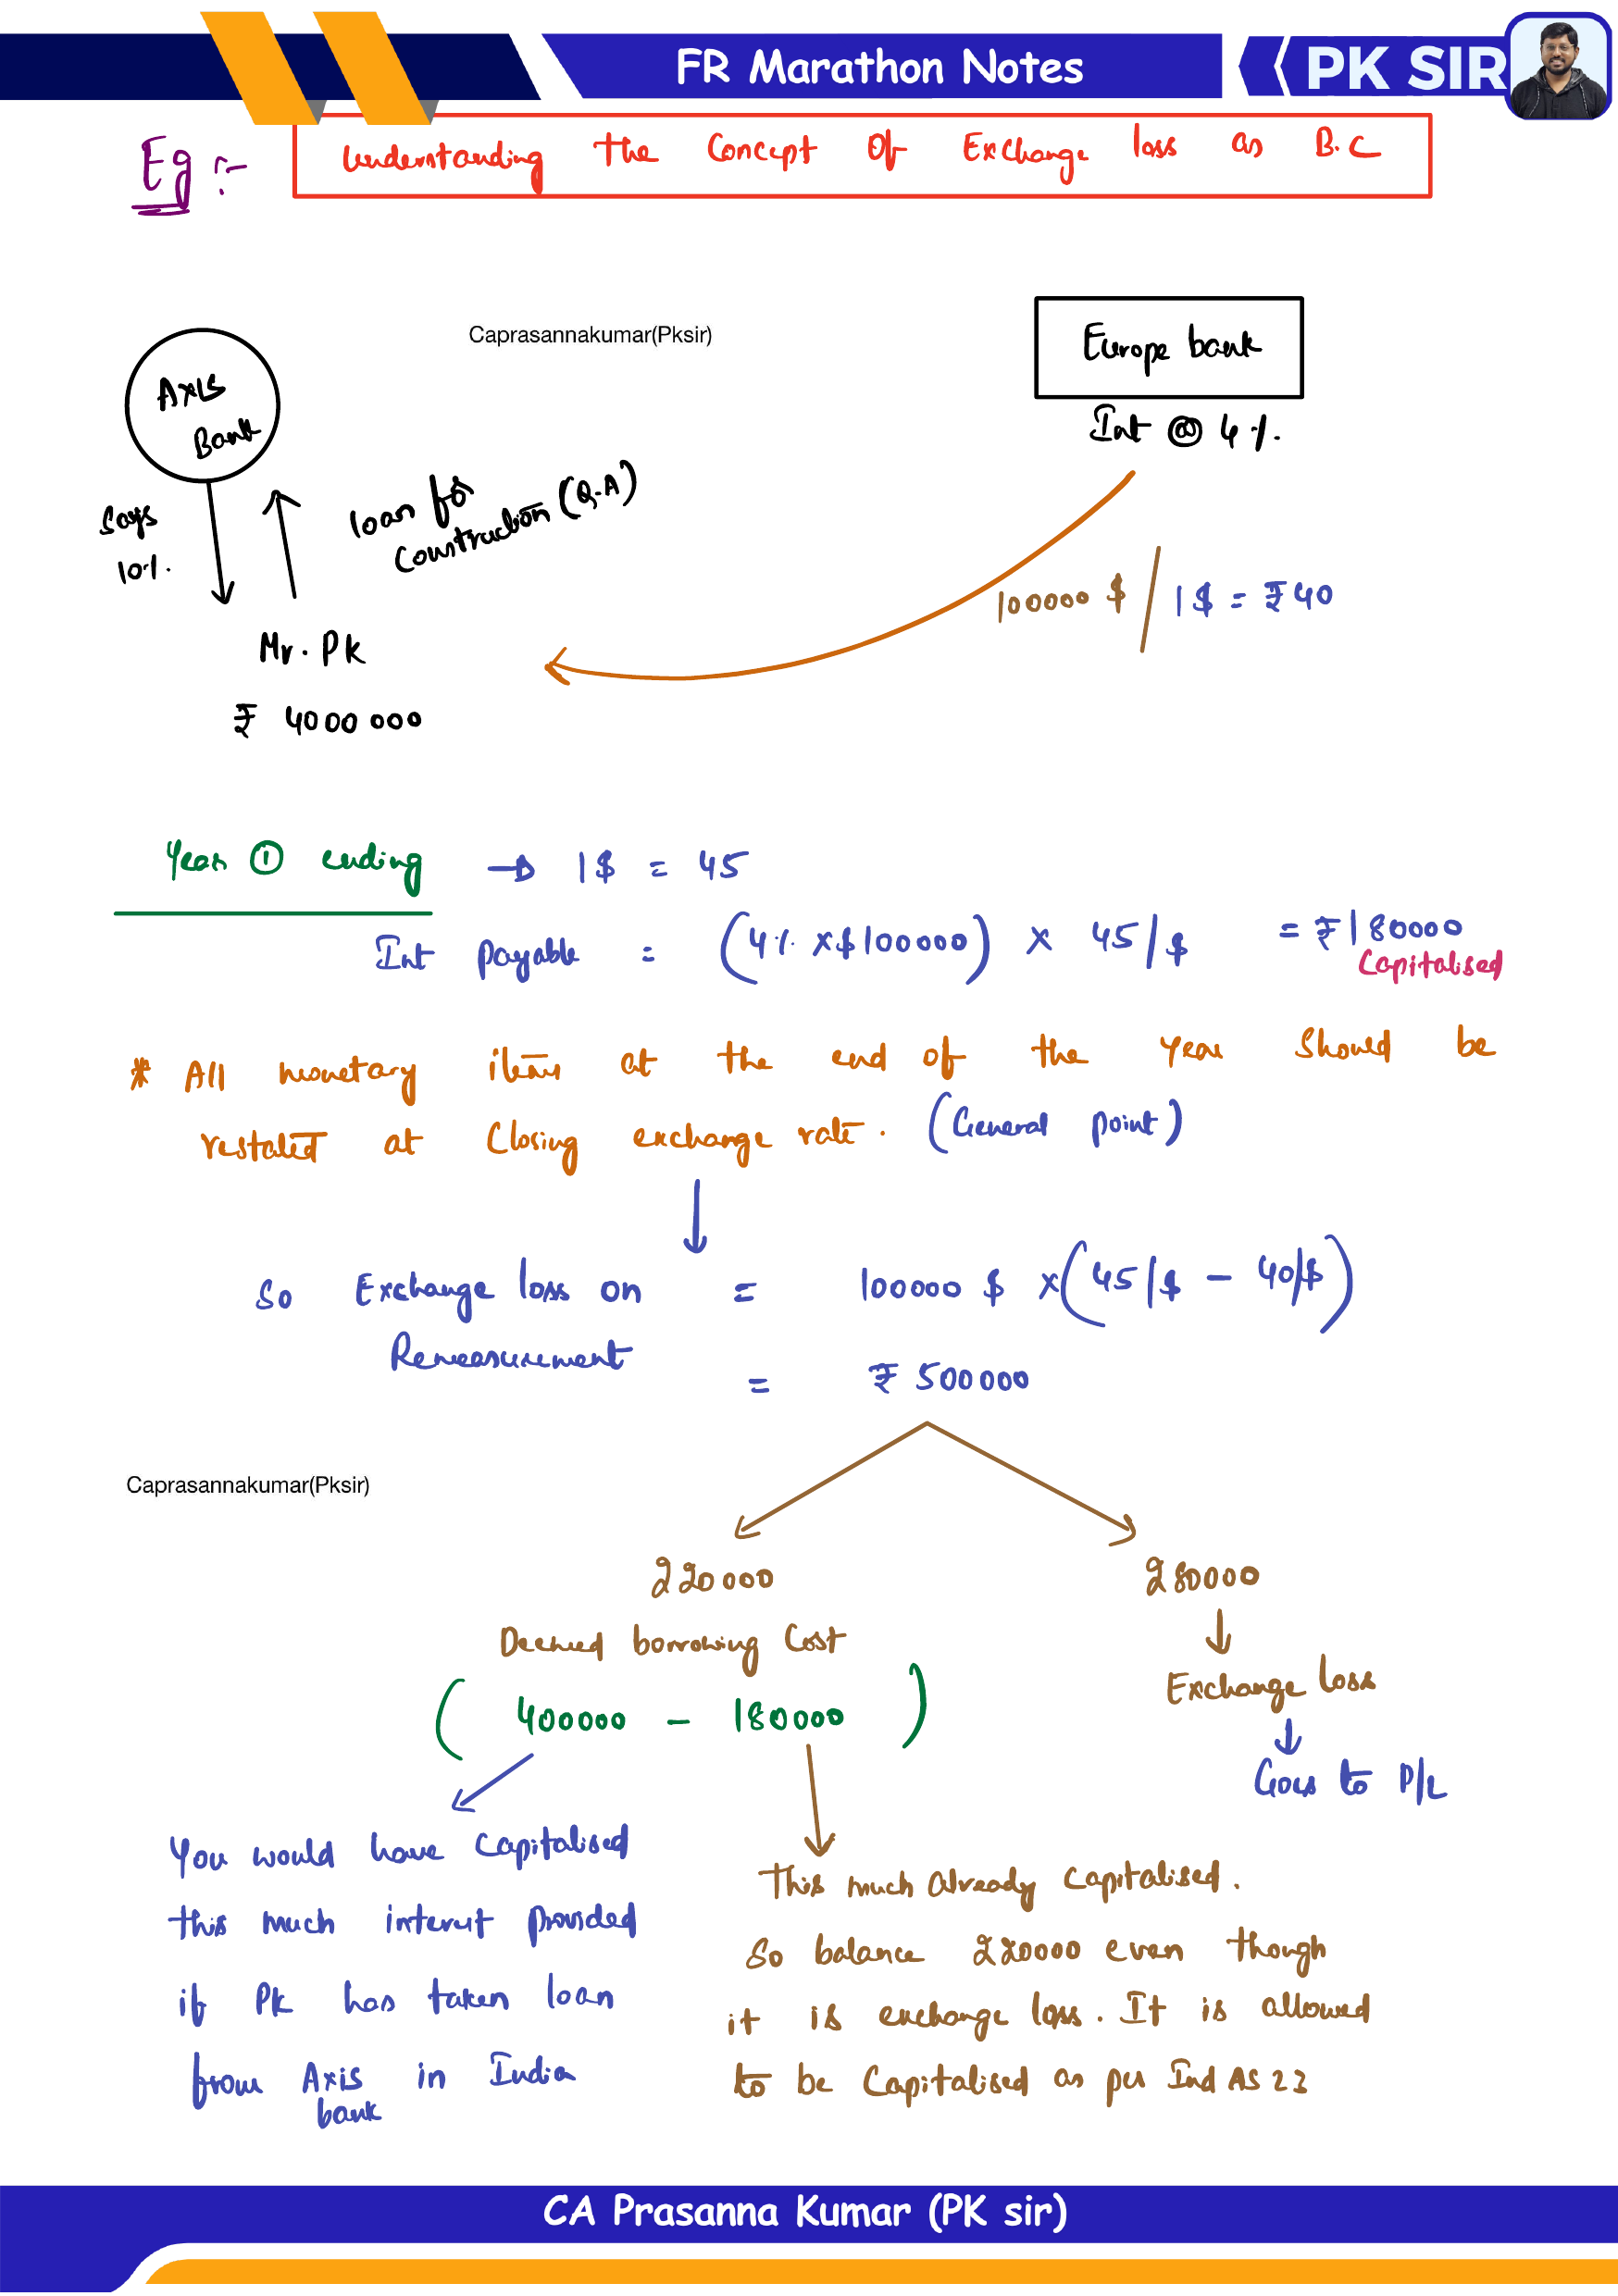 FR Marathon Notes
PK SIR
Eg :-
Understanding the Concept Of Exchange loss as B.C
Caprasannakumar(Pksir)
Europe bank
Int @ 4%.
Axis
Bank
Says
10%.
loan for
Construction (Q.A)
100000 $ / 1$ = ₹40
Mr. PK
₹ 4000 000
Year ① ending → 1$ = 45
Int payable = (4% x $100000) x 45/$ = ₹180000
Capitalised
* All monetary items at the end of the year should be
restated at Closing exchange rate. (General point)
So Exchange loss on = 100000 $ x (45/$ - 40/$)
Remeasurement
= ₹ 500000
Caprasannakumar(Pksir)
220000
280000
Deemed borrowing Cost
(400000 - 180000)
Exchange loss
Goes to P/L
You would have Capitalised
this much interest provided
if PK has taken loan
from Axis in India
bank
This much already Capitalised.
So balance 220000 even though
it is exchange loss. It is allowed
to be Capitalised as per Ind AS 23
CA Prasanna Kumar (PK sir)